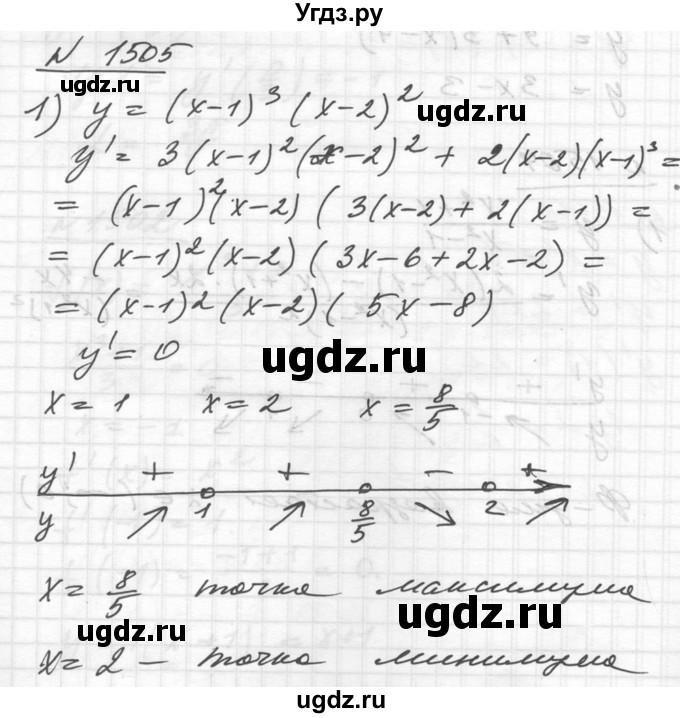 Угдз.ру
N 1505
ugdz.ru
1) y = (x-1)³ (x-2)²
ugdz.ru
y' = 3(x-1)² (x-2)² + 2(x-2)(x-1)³ =
= (x-1)² (x-2) ( 3(x-2) + 2(x-1)) =
= (x-1)² (x-2) ( 3x-6+2x-2) =
= (x-1)² (x-2) ( 5x-8)
y' = 0
ugdz.ru
x = 1 x = 2 x = 8/5
y' + + - +
y 1 8/5 2
x = 8/5 точка максимума
ugdz.ru ugdz.ru
x = 2 - точка минимума
ugdz.ru